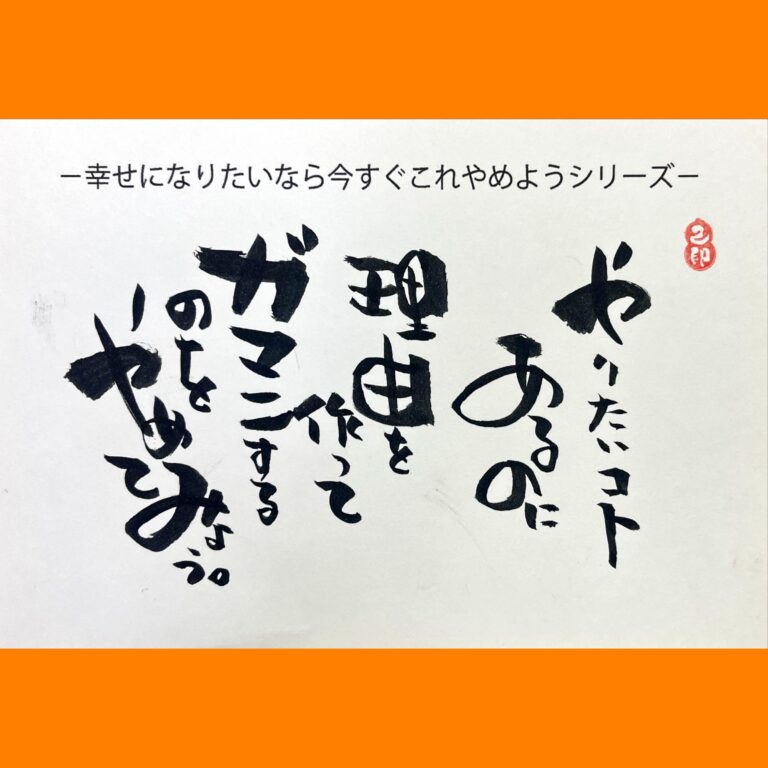 －幸せになりたいなら今すぐこれやめようシリーズ－
やりたいコト
あるのに
理由を
作って
ガマンする
のを
やめて
みな